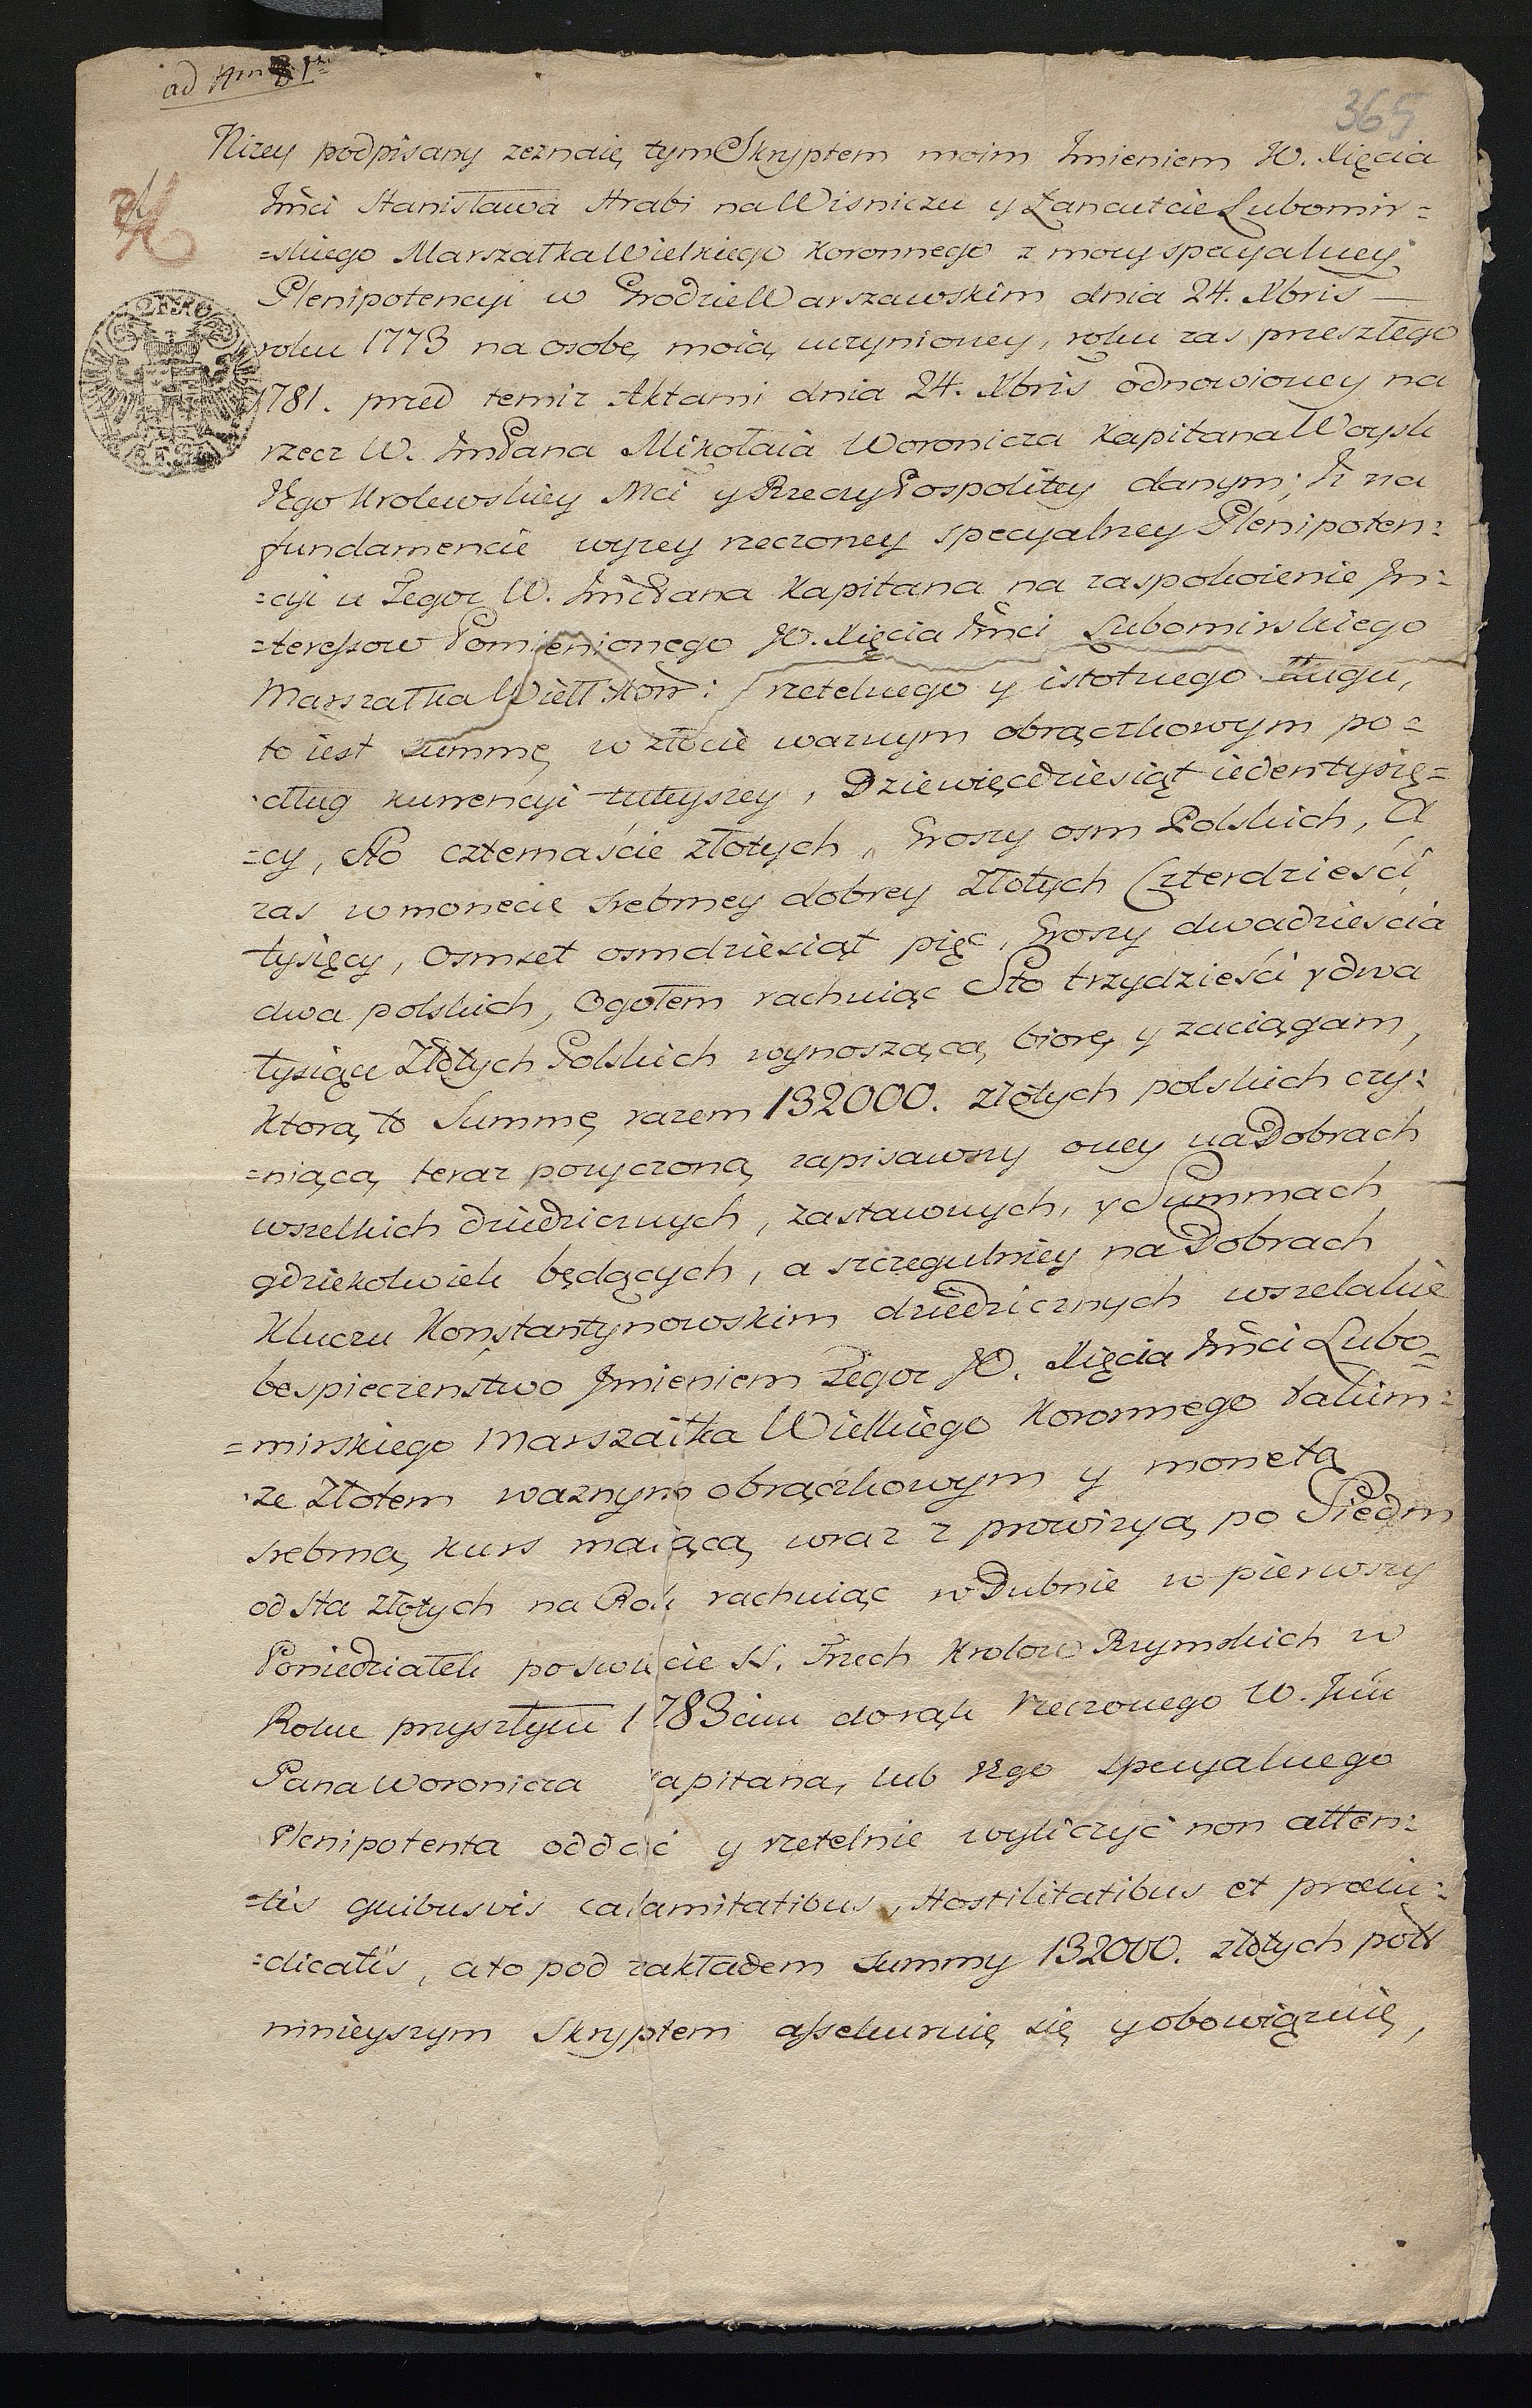 365
Nizey podpisany zeznaię tym Skryptem moim Imieniem JO. Xięcia
Imci Stanisława Hrabi na Wisniczu y Łancutcie Lubomir=
=skiego Marszałka Wielkiego Koronnego z mocy specyalney
Plenipotencyi w Grodzie Warszawskim dnia 24. Xbris
roku 1773 na osobę moią uczynioney, roku zas przeszłego
1781. przed temiz Aktami dnia 24. Xbris odnowioney na
rzecz W. Im Pana Mikołaia Woronicza Kapitana Woysk
JEgo Krolewskiey Mci y Rzeczy Pospolitey danym; Iz na
fundamencie wyzey rzeczoney specyalney Plenipoten=
=cyi u Tegoz W. Imć Pana Kapitana na zaspokoienie In=
=teressow Pomienionego JO. Xięcia Imci Lubomirskiego
Marszałka Wielk: Kor: rzetelnego y istotnego długu,
to iest summę w złocie waznym obrączkowym po=
dług kurrencyi tuteyszey, Dziewięcdziesiąt ieden tysię=
=cy, Sto czternaście złotych, Groszy osm Polskich, A
zas w monecie srebrney dobrey Złotych Czterdzieści
tysięcy, Osmset osmdziesiąt pięc, Groszy dwadzieścia
dwa polskich, Ogołem rachuiąc Sto trzydzieści y dwa
tysiące Złotych Polskich wynoszącą biorę y zaciągam,
Ktorą to Summę razem 132000. złotych polskich czy=
=niącą teraz pozyczoną zapisawszy oney na Dobrach
wszelkich dziedzicznych, zastawnych, y Summach
gdziekolwiek będących, a szczegulniey na Dobrach
Kluczu Konstantynowskim dziedzicznych wszelakie
bespieczenstwo Imieniem Tegoz JO. Xięcia Imci Lubo=
=mirskiego Marszałka Wielkiego Koronnego takim=
ze Złotem waznym obrączkowym y monetą
srebrną kurs maiącą wraz z prowizyą po Siedm
od sta złotych na Rok rachuiąc w Dubnie w pierwszy
Poniedziałek po swięcie SS. Trzech Krolow Rzymskich w
Roku przyszłym 1783cim do rąk rzeczonego W. Im
Pana Woronicza Kapitana, lub JEgo specyalnego
Plenipotenta oddać y rzetelnie wyliczyć non atten=
=tis quibusvis calamitatibus, Hostilitatibus et præiu=
=dicatis, a to pod zakładem summy 132000. złotych pols
ninieyszym Skryptem assekuruię się y obowiązuię,